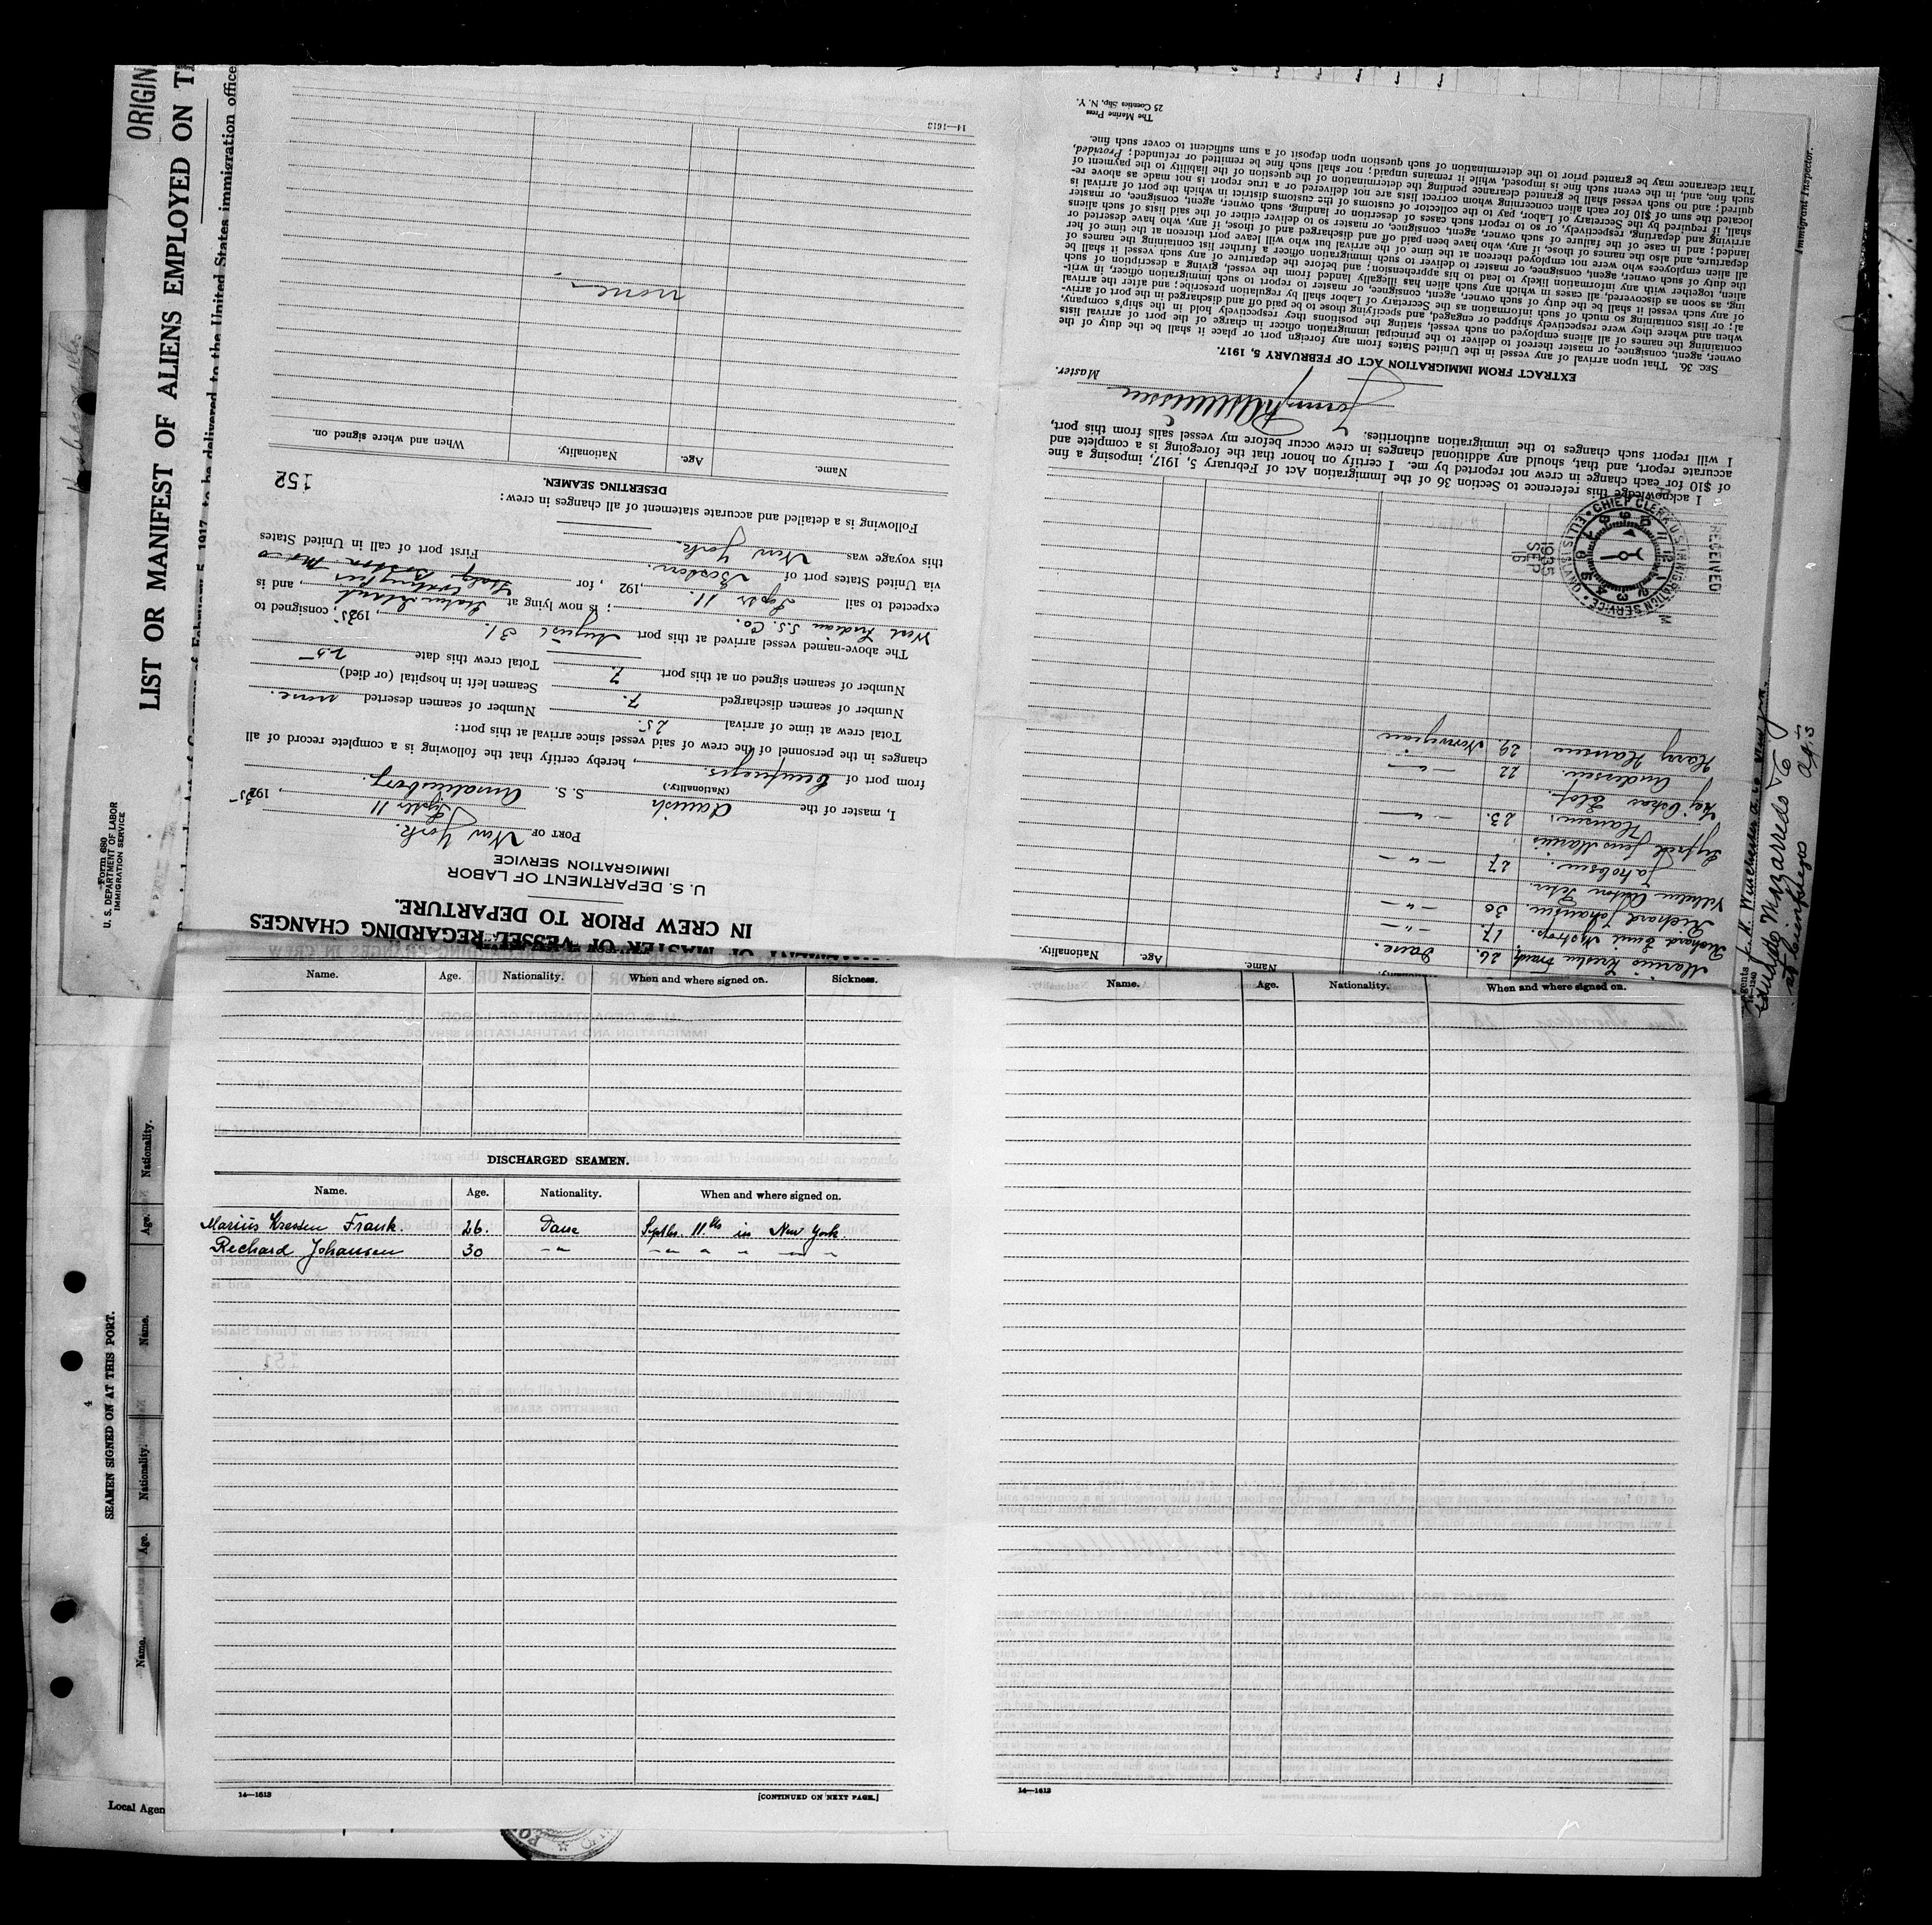 ORIGIN
LIST OR MANIFEST OF ALIENS EMPLOYED ON T
to be delivered to the United States immigration office
Form 680
U. S. DEPARTMENT OF LABOR
IMMIGRATION SERVICE
IN CREW PRIOR TO DEPARTURE.
U. S. DEPARTMENT OF LABOR
IMMIGRATION SERVICE
PORT OF New York.
Septbr 11, 1935
I, master of the Danish S. S.
(Nationality.)
from port of Cienfuegos, hereby certify that the following is a complete record of all
changes in the personnel of the crew of said vessel since arrival at this port:
Total crew at time of arrival 25. Number of seamen deserted none.
Number of seamen discharged 7. Seamen left in hospital (or died)
Number of seamen signed on at this port 7 Total crew this date 25
The above-named vessel arrived at this port August 31., 1935, consigned to
West Indian S.S. Co.; is now lying at Staten Island, and is
expected to sail Septr 11., 192 , for
via United States port of Boston. First port of call in United States
this voyage was New York.
152
Following is a detailed and accurate statement of all changes in crew:
DESERTING SEAMEN.
Name. Age. Nationality. When and where signed on.
none
14—1613
Name. Age. Nationality.
Marius Kresten Frank 26. Dane.
Richard Emil 17. — " —
Richard Johansen. 30 — " —
Vilhelm Peter
Jakobsen. 27 — " —
Jens Marius
Hansen. 23. — " —
Kaj Oskar Elof.
Andersen. 22 — " —
Harry Hansen 29. Norwegian
RECEIVED
1935 SEP 16
CHIEF CLERK U.S. IMMIGRATION SERVICE
I acknowledge this reference to Section 36 of the Immigration Act of February 5, 1917, imposing a fine
of $10 for each change in crew not reported by me. I certify on honor that the foregoing is a complete and
accurate report, and that, should any additional changes in crew occur before my vessel sails from this port,
I will report such changes to the immigration authorities.
Master.
EXTRACT FROM IMMIGRATION ACT OF FEBRUARY 5, 1917.
SEC. 36. That upon arrival of any vessel in the United States from any foreign port or place it shall be the duty of the
owner, agent, consignee, or master thereof to deliver to the principal immigration officer in charge of the port of arrival lists
containing the names of all aliens employed on such vessel, stating the positions they respectively hold in the ship's company,
when and where they were respectively shipped or engaged, and specifying those to be paid off and discharged in the port of arriv-
al; or lists containing so much of such information as the Secretary of Labor shall by regulation prescribe; and after the arrival
of any such vessel it shall be the duty of such owner, agent, consignee, or master to report to such immigration officer, in writ-
ing, as soon as discovered, all cases in which any such alien has illegally landed from the vessel, giving a description of such
alien, together with any information likely to lead to his apprehension; and before the departure of any such vessel it shall be
the duty of such owner, agent, consignee, or master to deliver to such immigration officer a further list containing the names of
all alien employees who were not employed thereon at the time of the arrival but who will leave port thereon at the time of her
departure, and also the names of those, if any, who have been paid off and discharged and of those, if any, who have deserted or
landed; and in case of the failure of such owner, agent, consignee, or master so to deliver either of the said lists of such aliens
arriving and departing, respectively, or so to report such cases of desertion or landing, such owner, agent, consignee, or master
shall, if required by the Secretary of Labor, pay to the collector of customs of the customs district in which the port of arrival is
located the sum of $10 for each alien concerning whom correct lists are not delivered or a true report is not made as above re-
quired; and no such vessel shall be granted clearance pending the determination of the question of the liability to the payment of
such fine, and, in the event such fine is imposed, while it remains unpaid; nor shall such fine be remitted or refunded; Provided,
That clearance may be granted prior to the determination of such question upon deposit of a sum sufficient to cover such fine.
The Marine Press
25 Coenties Slip, N. Y.
Immigrant Inspector.
14—1240
Eduardo Mazarredo
at Cienfuegos
Name. Age. Nationality. When and where signed on. Sickness.
DISCHARGED SEAMEN.
Name. Age. Nationality. When and where signed on.
Marius Kresten Frank. 26. Dane Septbr. 11th in New York.
Richard Johansen 30 — " — — " — " — " —
14—1613
[CONTINUED ON NEXT PAGE.]
Name. Age. Nationality. When and where signed on.
14—1613
4
SEAMEN SIGNED ON AT THIS PORT.
Name. Age. Nationality. Name. Age. Nationality.
Local Agen